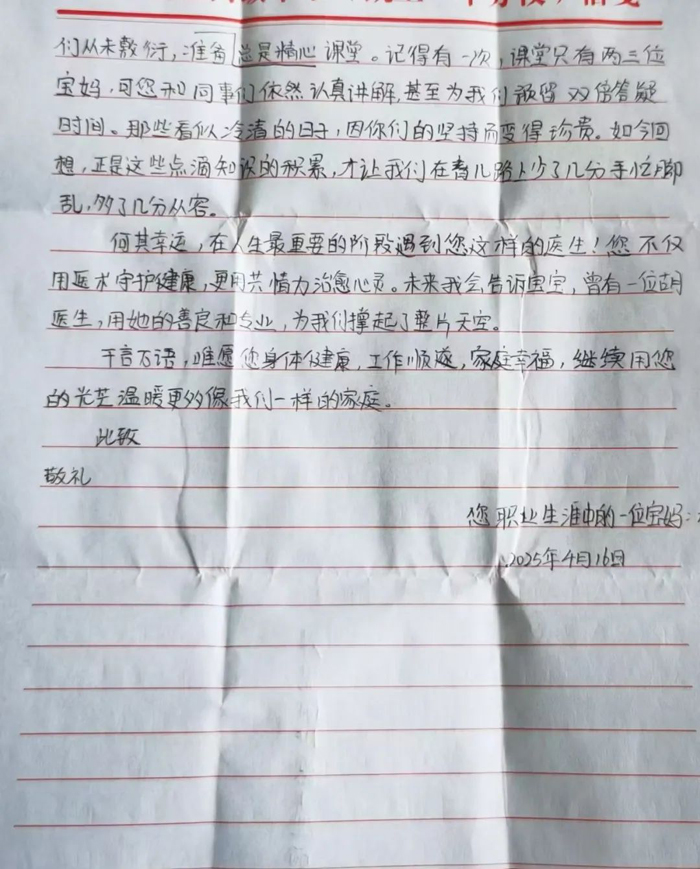 们从未敷衍，准备总是精心课堂。记得有一次，课堂只有两三位
宝妈，可您和同事们依然认真讲解，甚至为我们预留双倍答疑
时间。那些看似冷清的日子，因你们的坚持而变得珍贵。如今回
想，正是这些点滴知识的积累，才让我们在育儿路上少了几分手忙脚
乱，多了几分从容。
何其幸运，在人生最重要的阶段遇到您这样的医生！您不仅
用医术守护健康，更用共情力治愈心灵。未来我会告诉宝宝，曾有一位胡
医生，用她的善良和专业，为我们撑起了整片天空。
千言万语，唯愿您身体健康，工作顺遂，家庭幸福，继续用您
的光芒温暖更多像我们一样的家庭。
此致
敬礼
您职业生涯中的一位宝妈：
2025年4月16日